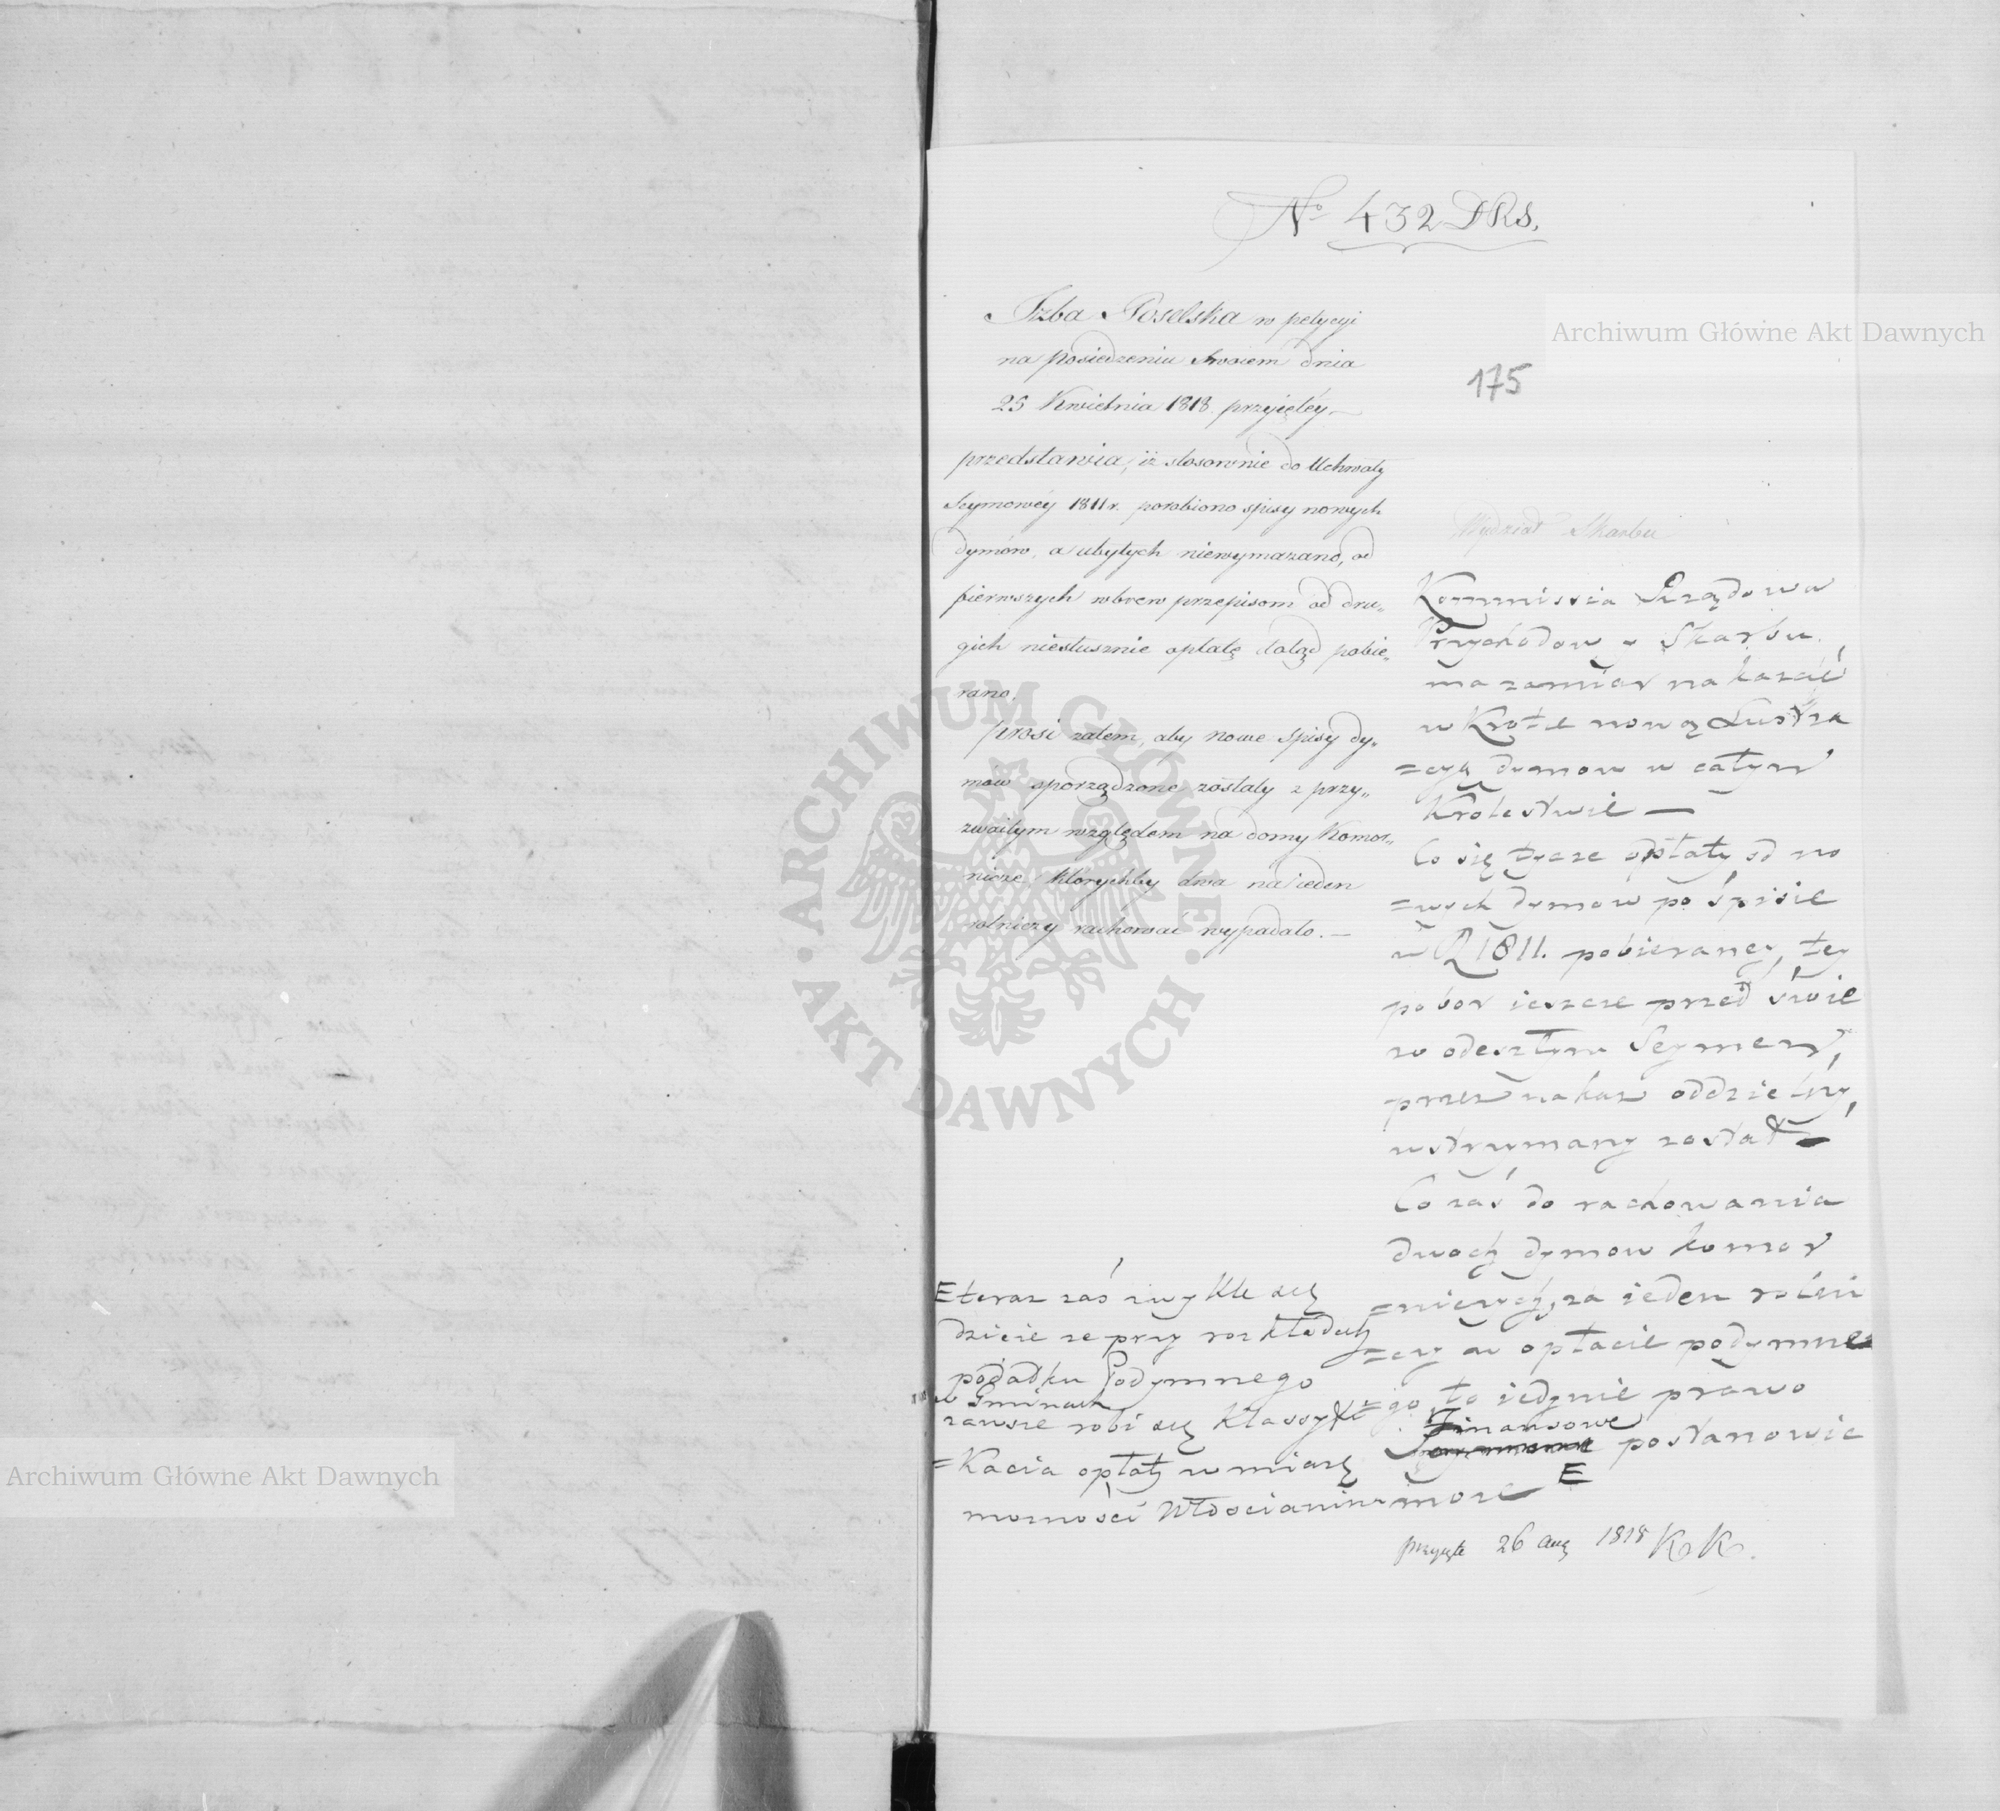 No 432 DRS.
175
Izba Poselska w petycyi
na posiedzeniu swoiem dnia
25 Kwietnia 1818. przyiętéy
przedstawia, iż stosownie do Uchwały
Seymowéy 1811 r. porobiono spisy nowych
dymów, a ubyłych niewymazano, od
pierwszych wbrew przepisom od dru„
gich niesłusznie opłatę dotąd pobie„
rano.
prosi zatem, aby nowe spisy dy„
mów sporządzone zostały z przy„
zwoitym względem na domy Komor„
nicze, którychby dwa na ieden
rolniczy rachować wypadało. —
Wydział Skarbu
Kommissia Rządowa
Przychodow y Skarbu,
ma zamiar nakazać
w Krotce nową Lustra
=cyą dymow w całym
Krolestwie —
Co się tycze opłaty od no
=wych dymow po spisie
w R 1811. pobieraney, tey
pobor ieszcze przed świe
zo odeszłym Seymem,
przez nakaz oddzielny,
wstrzymany został —
Co zaś do rachowania
dwoch dymow komor
=niczych, za ieden rolni
=czy w opłacie podymne
=go, to iedynie prawo
Finansowe
postanowic
moze E
E teraz zaś zwykle się
dzieie ze przy rozkładach
podatku Podymnego
w Gminach
zawsze robi się Klassyfi=
=Kacia opłaty w miarę
mozności Włoscianina
przyięte 26 aug 1818 K K.
Archiwum Główne Akt Dawnych
Archiwum Główne Akt Dawnych
ARCHIWUM GŁÓWNE · AKT DAWNYCH ·